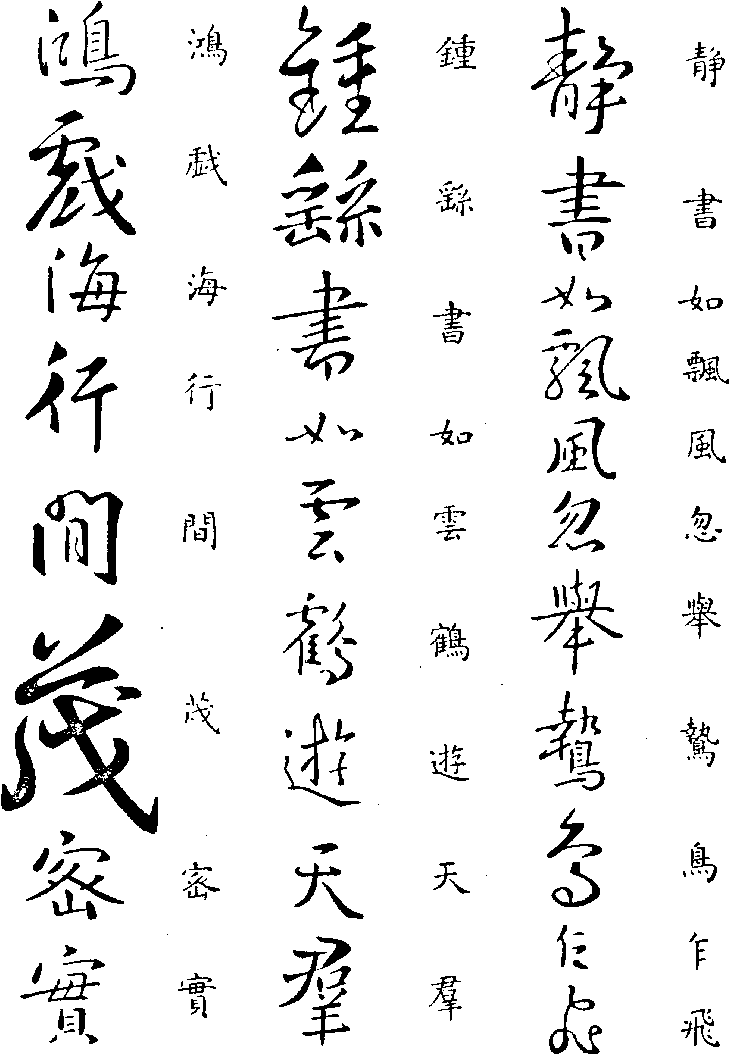 靜書如飄風忽舉鷙鳥乍飛
靜書如飄風忽舉鷙鳥乍飛
鍾繇書如雲鶴遊天羣
鍾繇書如雲鶴遊天羣
鴻戲海行間茂密實
鴻戱海行間茂密實